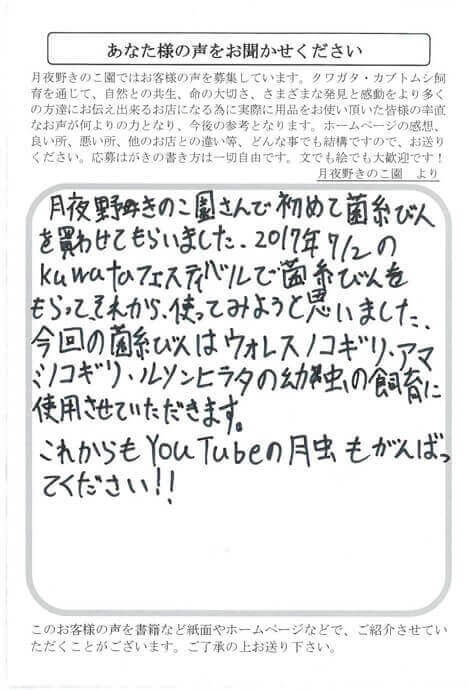 あなた様の声をお聞かせください
月夜野きのこ園ではお客様の声を募集しています。クワガタ・カブトムシ飼
育を通じて、自然との共生、命の大切さ、さまざまな発見と感動をより多く
の方達にお伝え出来るお店になる為に実際に用品をお使い頂いた皆様の率直
なお声が何よりの力となり、今後の参考となります。ホームページの感想、
良い所、悪い所、他のお店との違い等、どんな事でも結構ですので、お送り
ください。応募はがきの書き方は一切自由です。文でも絵でも大歓迎です！
月夜野きのこ園　より
月夜野きのこ園さんで初めて菌糸びん
を買わせてもらいました、2017年7/2の
kuwataフェスティバルで菌糸びんを
もらって、それから、使ってみようと思いました、
今回の菌糸びんはウォレスノコギリ、アマ
ミノコギリ・ルソンヒラタの幼虫の飼育に
使用させていただきます。
これからもYouTubeの月虫もがんばっ
てください!!
このお客様の声を書籍など紙面やホームページなどで、ご紹介させてい
ただくことがございます。ご了承の上お送り下さい。